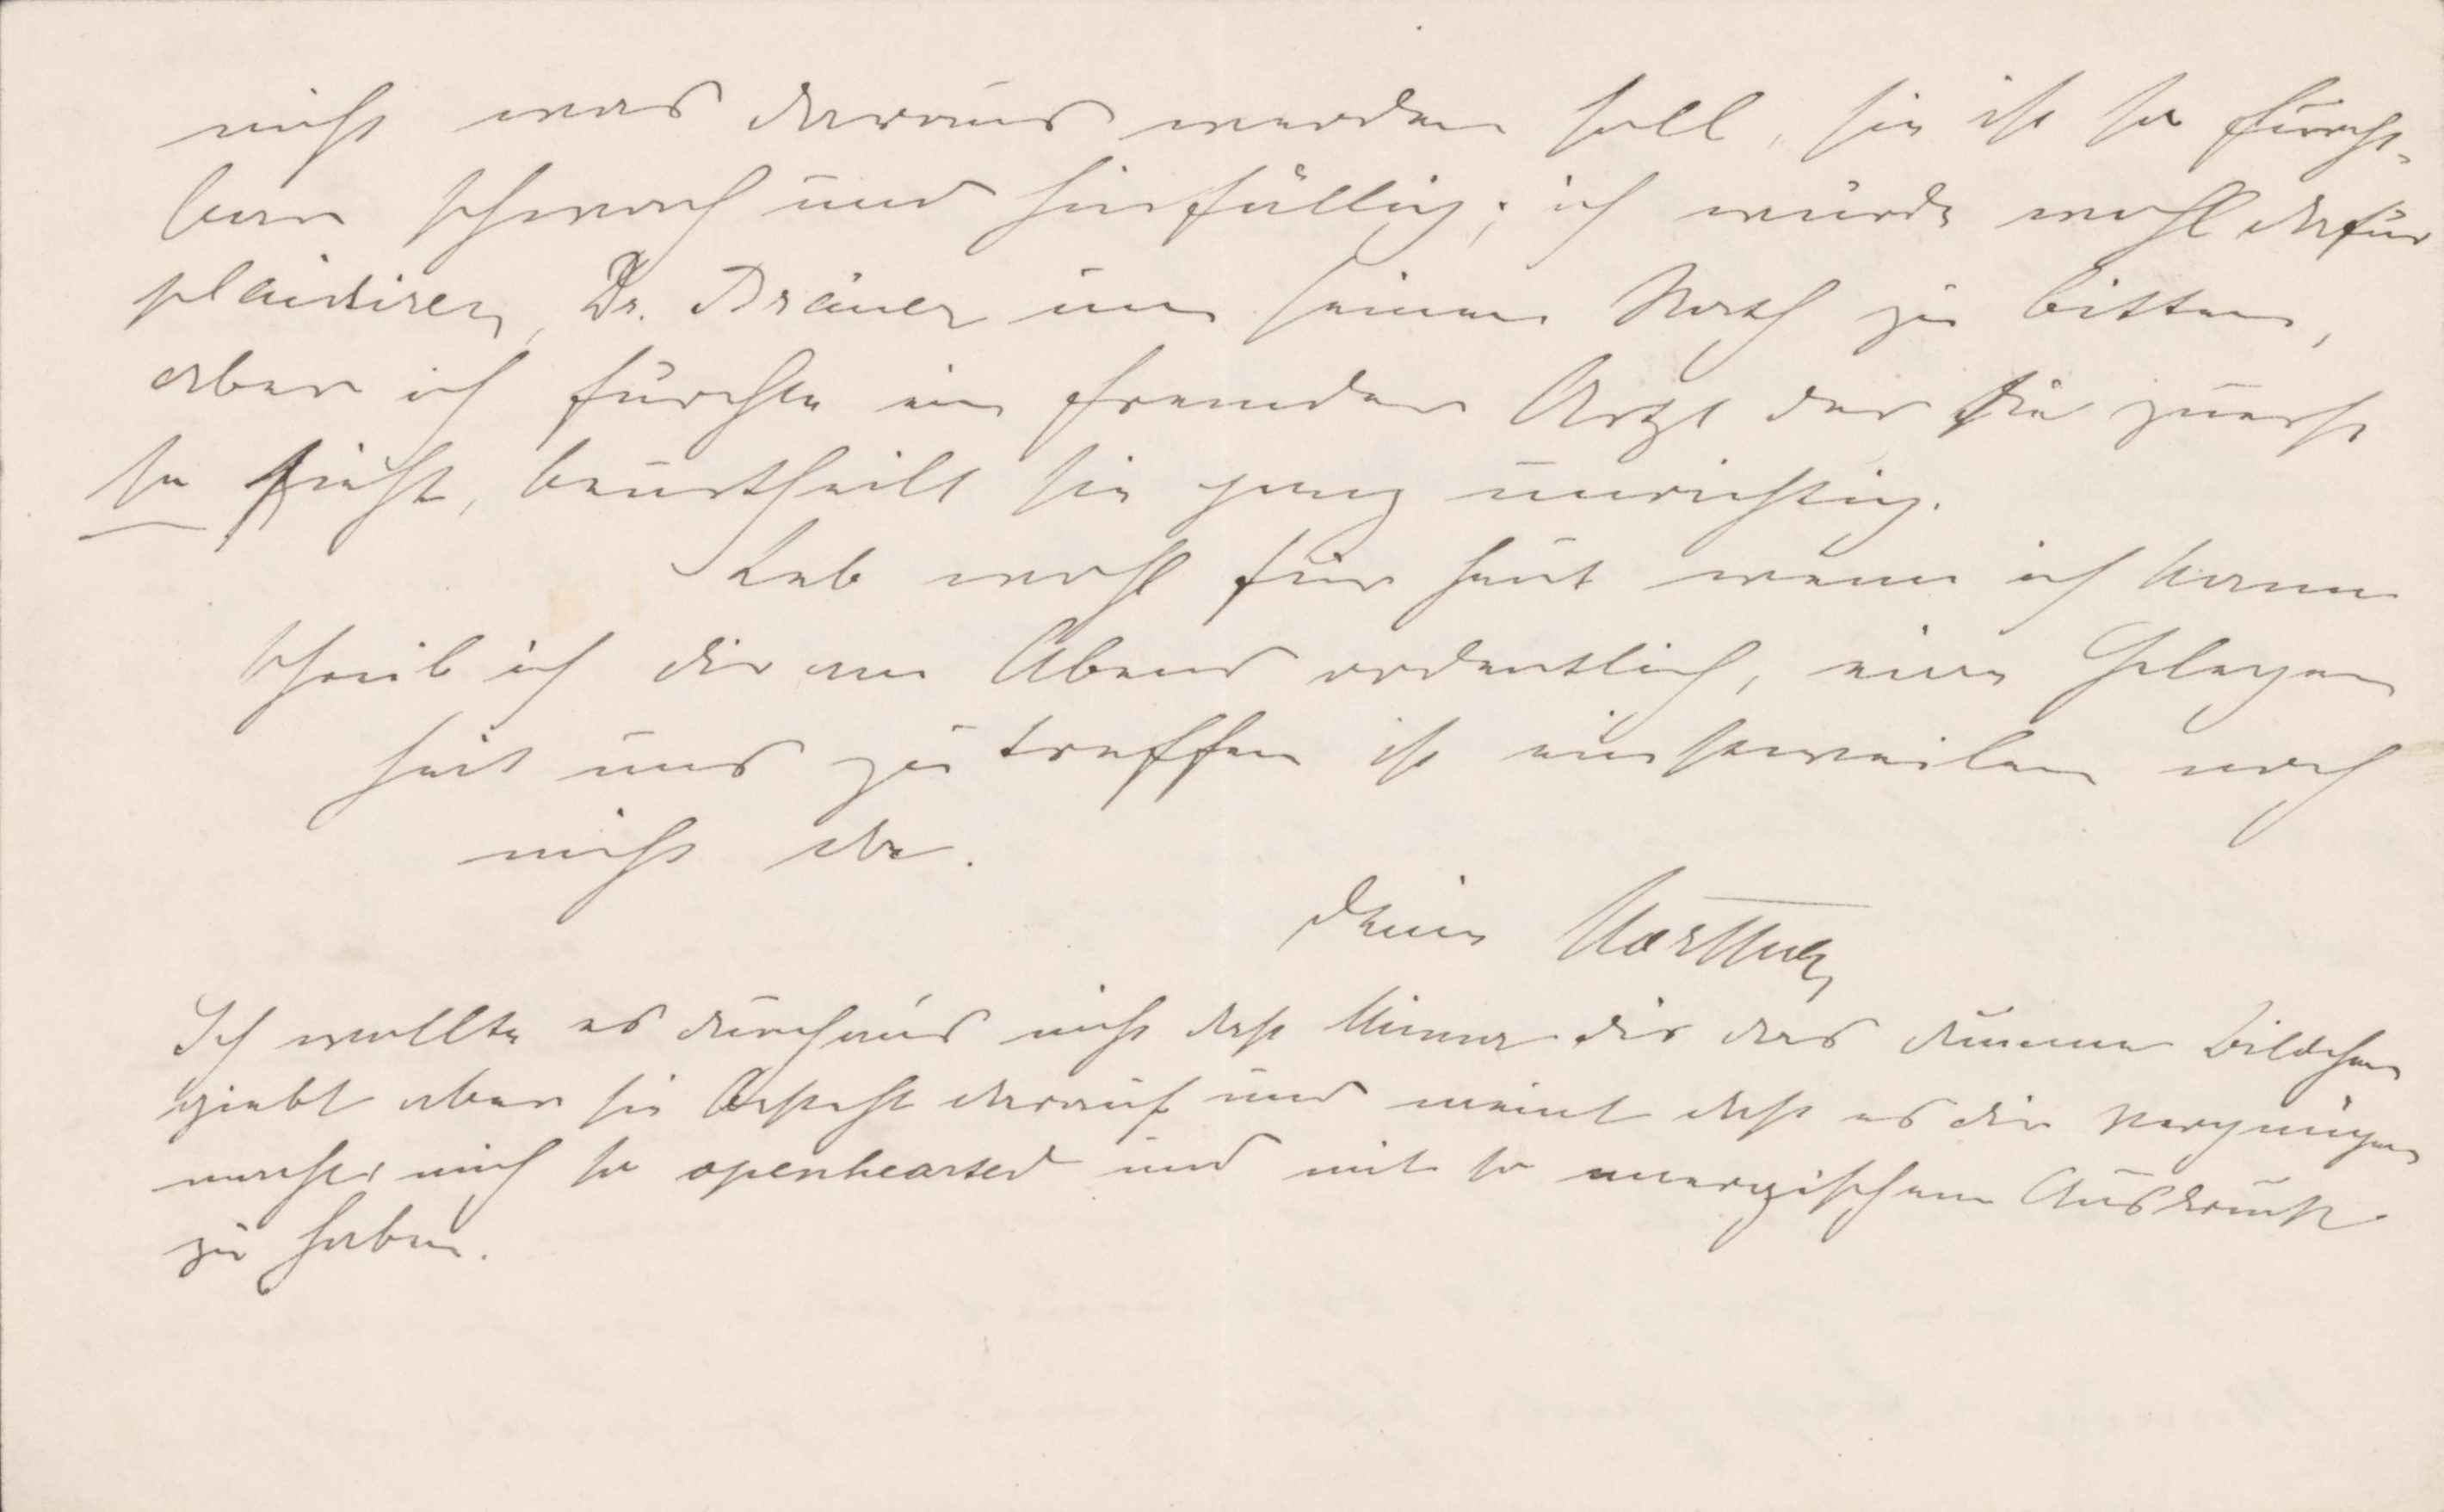 nicht was daraus werden soll, sie ist so furcht-
bar schwach und hinfällig; ich würde wohl dafür
plaidiren, Dr. Bräuer um seinen Rath zu bitten,
aber ich fürchte ein fremder Arzt der sie zuerst
so sieht, beurtheilt sie ganz unrichtig.
Leb wohl für heut wenn ich kann
schreib ich dir am Abend ordentlich, eine Gelegen
heit uns zu treffen ist einstweilen noch
nicht da.
deine Martha
Ich wollte es durchaus nicht daß Minna dir das dumme Bildchen
giebt aber sie besteht darauf und meint daß es dir Vergnügen
macht mich so openhearted und mit so energischem Ausdruck
zu haben.